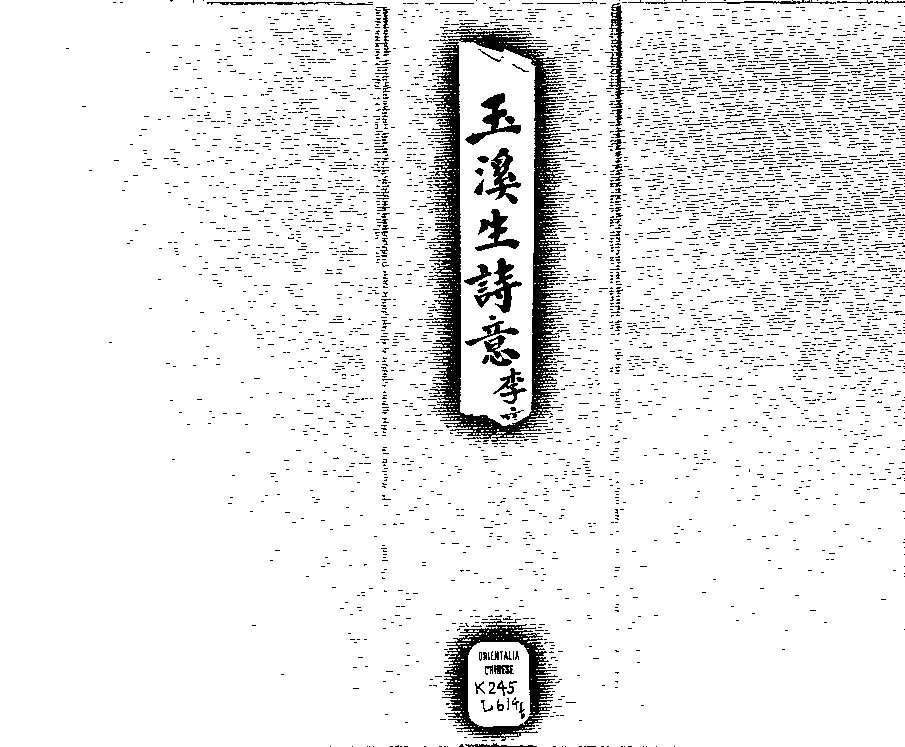 玉溪生詩意
李
ORIENTALIA
CHINESE
K245
L614